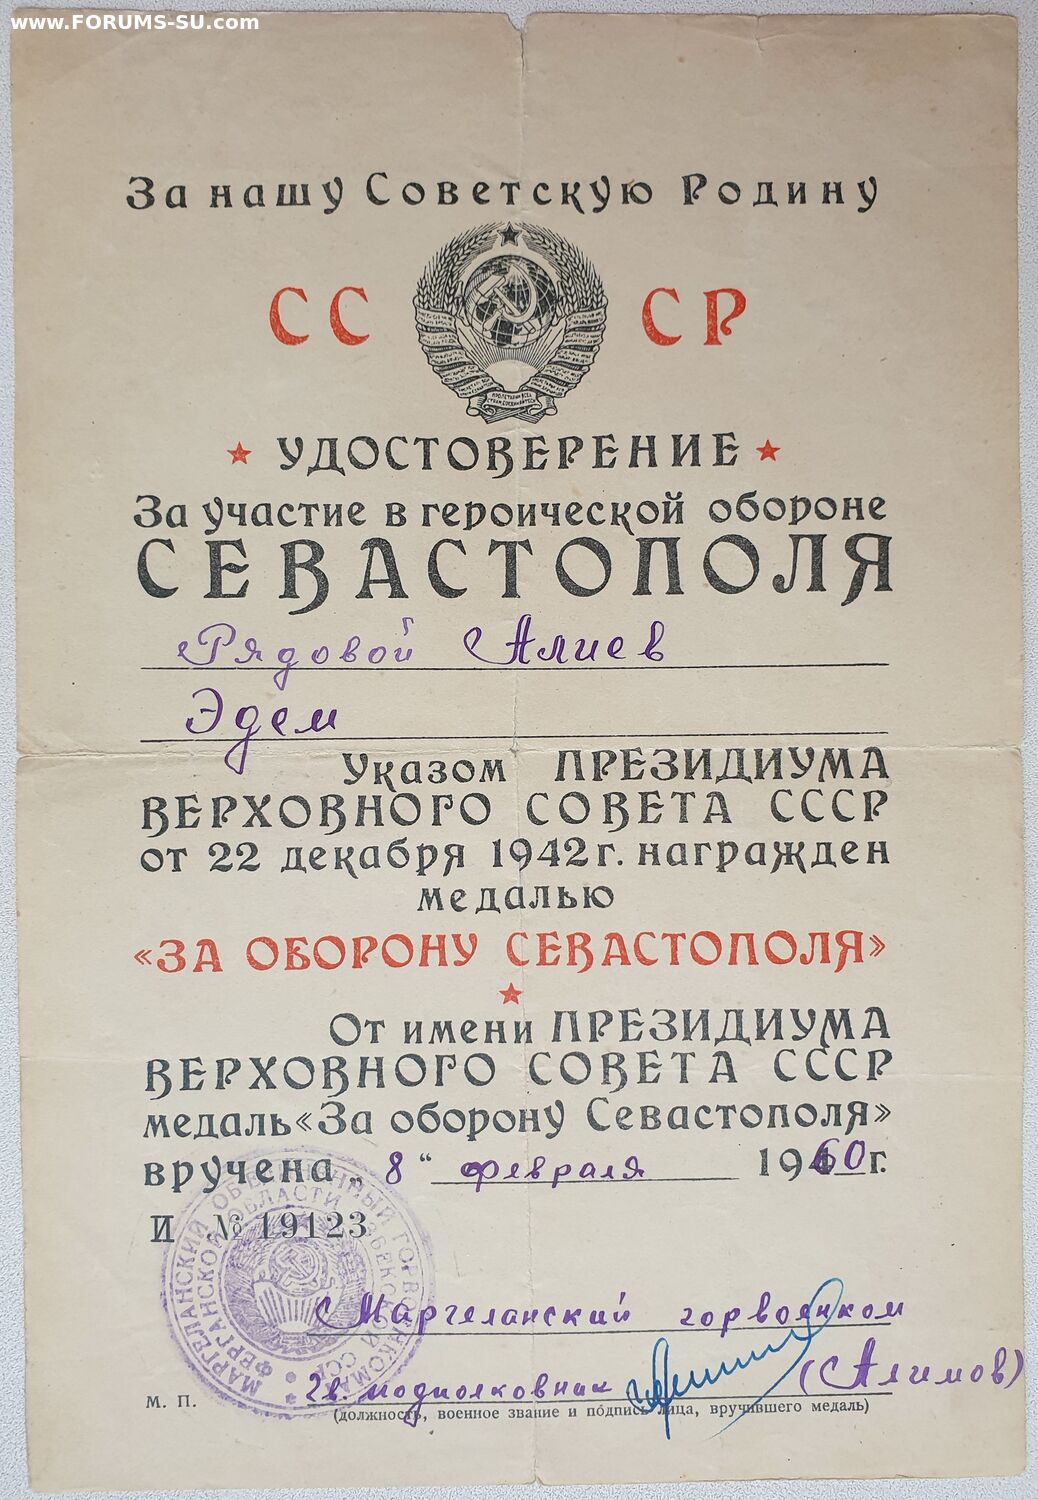 www.FORUMS-SU.com
За нашу Советскую Родину
СС СР
ПРОЛЕТАРИИ ВСЕХ СТРАН, СОЕДИНЯЙТЕСЬ!
УДОСТОВЕРЕНИЕ
За участие в героической обороне
СЕВАСТОПОЛЯ
Рядовой Алиев
Эдем
Указом ПРЕЗИДИУМА
ВЕРХОВНОГО СОВЕТА СССР
от 22 декабря 1942 г. награжден
медалью
«ЗА ОБОРОНУ СЕВАСТОПОЛЯ»
От имени ПРЕЗИДИУМА
ВЕРХОВНОГО СОВЕТА СССР
медаль «За оборону Севастополя»
вручена „8“ февраля 1960 г.
И № 19123
МАРГЕЛАНСКИЙ ОБЪЕДИНЕННЫЙ ГОРВОЕНКОМАТ
ФЕРГАНСКОЙ ОБЛАСТИ УЗБЕКСКОЙ ССР
Маргеланский горвоенком
гв. подполковник (Алимов)
М. П.
(должность, военное звание и подпись лица, вручившего медаль)